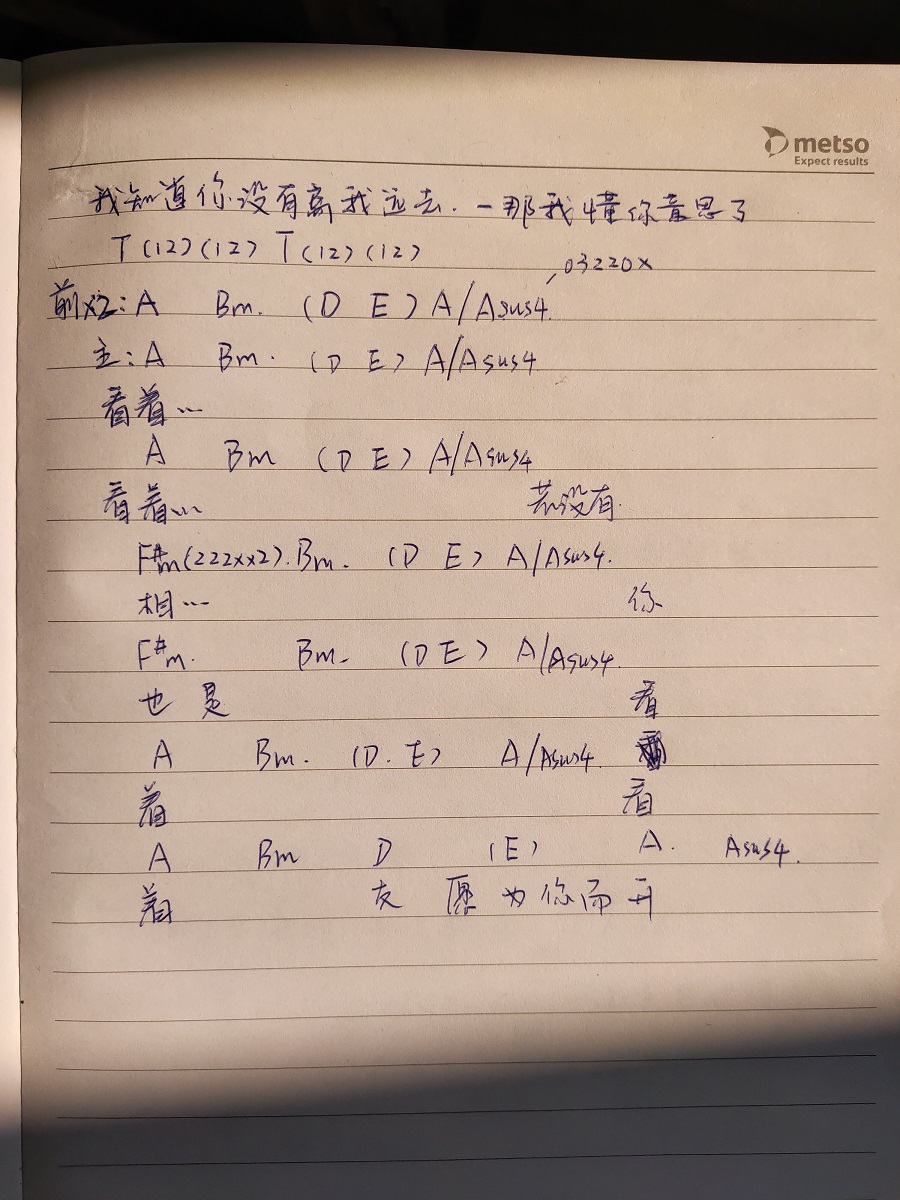 metso
Expect results
我知道你没有离我远去.一那我懂你意思了
T(12)(12) T(12)(12)
03220x
前x2:A Bm. (D E) A/Asus4.
主:A Bm. (D E) A/Asus4
看着...
A Bm (D E) A/Asus4
看着... 若没有.
F#m(222xx2).Bm. (D E) A/Asus4.
相... 你
F#m. Bm. (D E) A/Asus4.
也是 看
A Bm. (D.E) A/Asus4.
着 看
A Bm D (E) A. Asus4.
着 友 愿为你而开